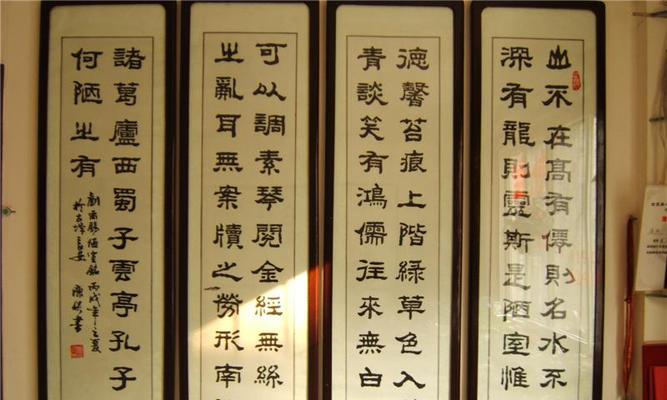 山不在高有僊則名水不
深有龍則靈斯是陋室惟
德馨苔痕上階綠草色入
青談笑有鴻儒往來無白
可以調素琴閱金經無絲
之亂耳無案牘之勞形南
諸葛廬西蜀子雲亭孔子
何陋之有
劉禹錫陋室銘 丙戌年之夏